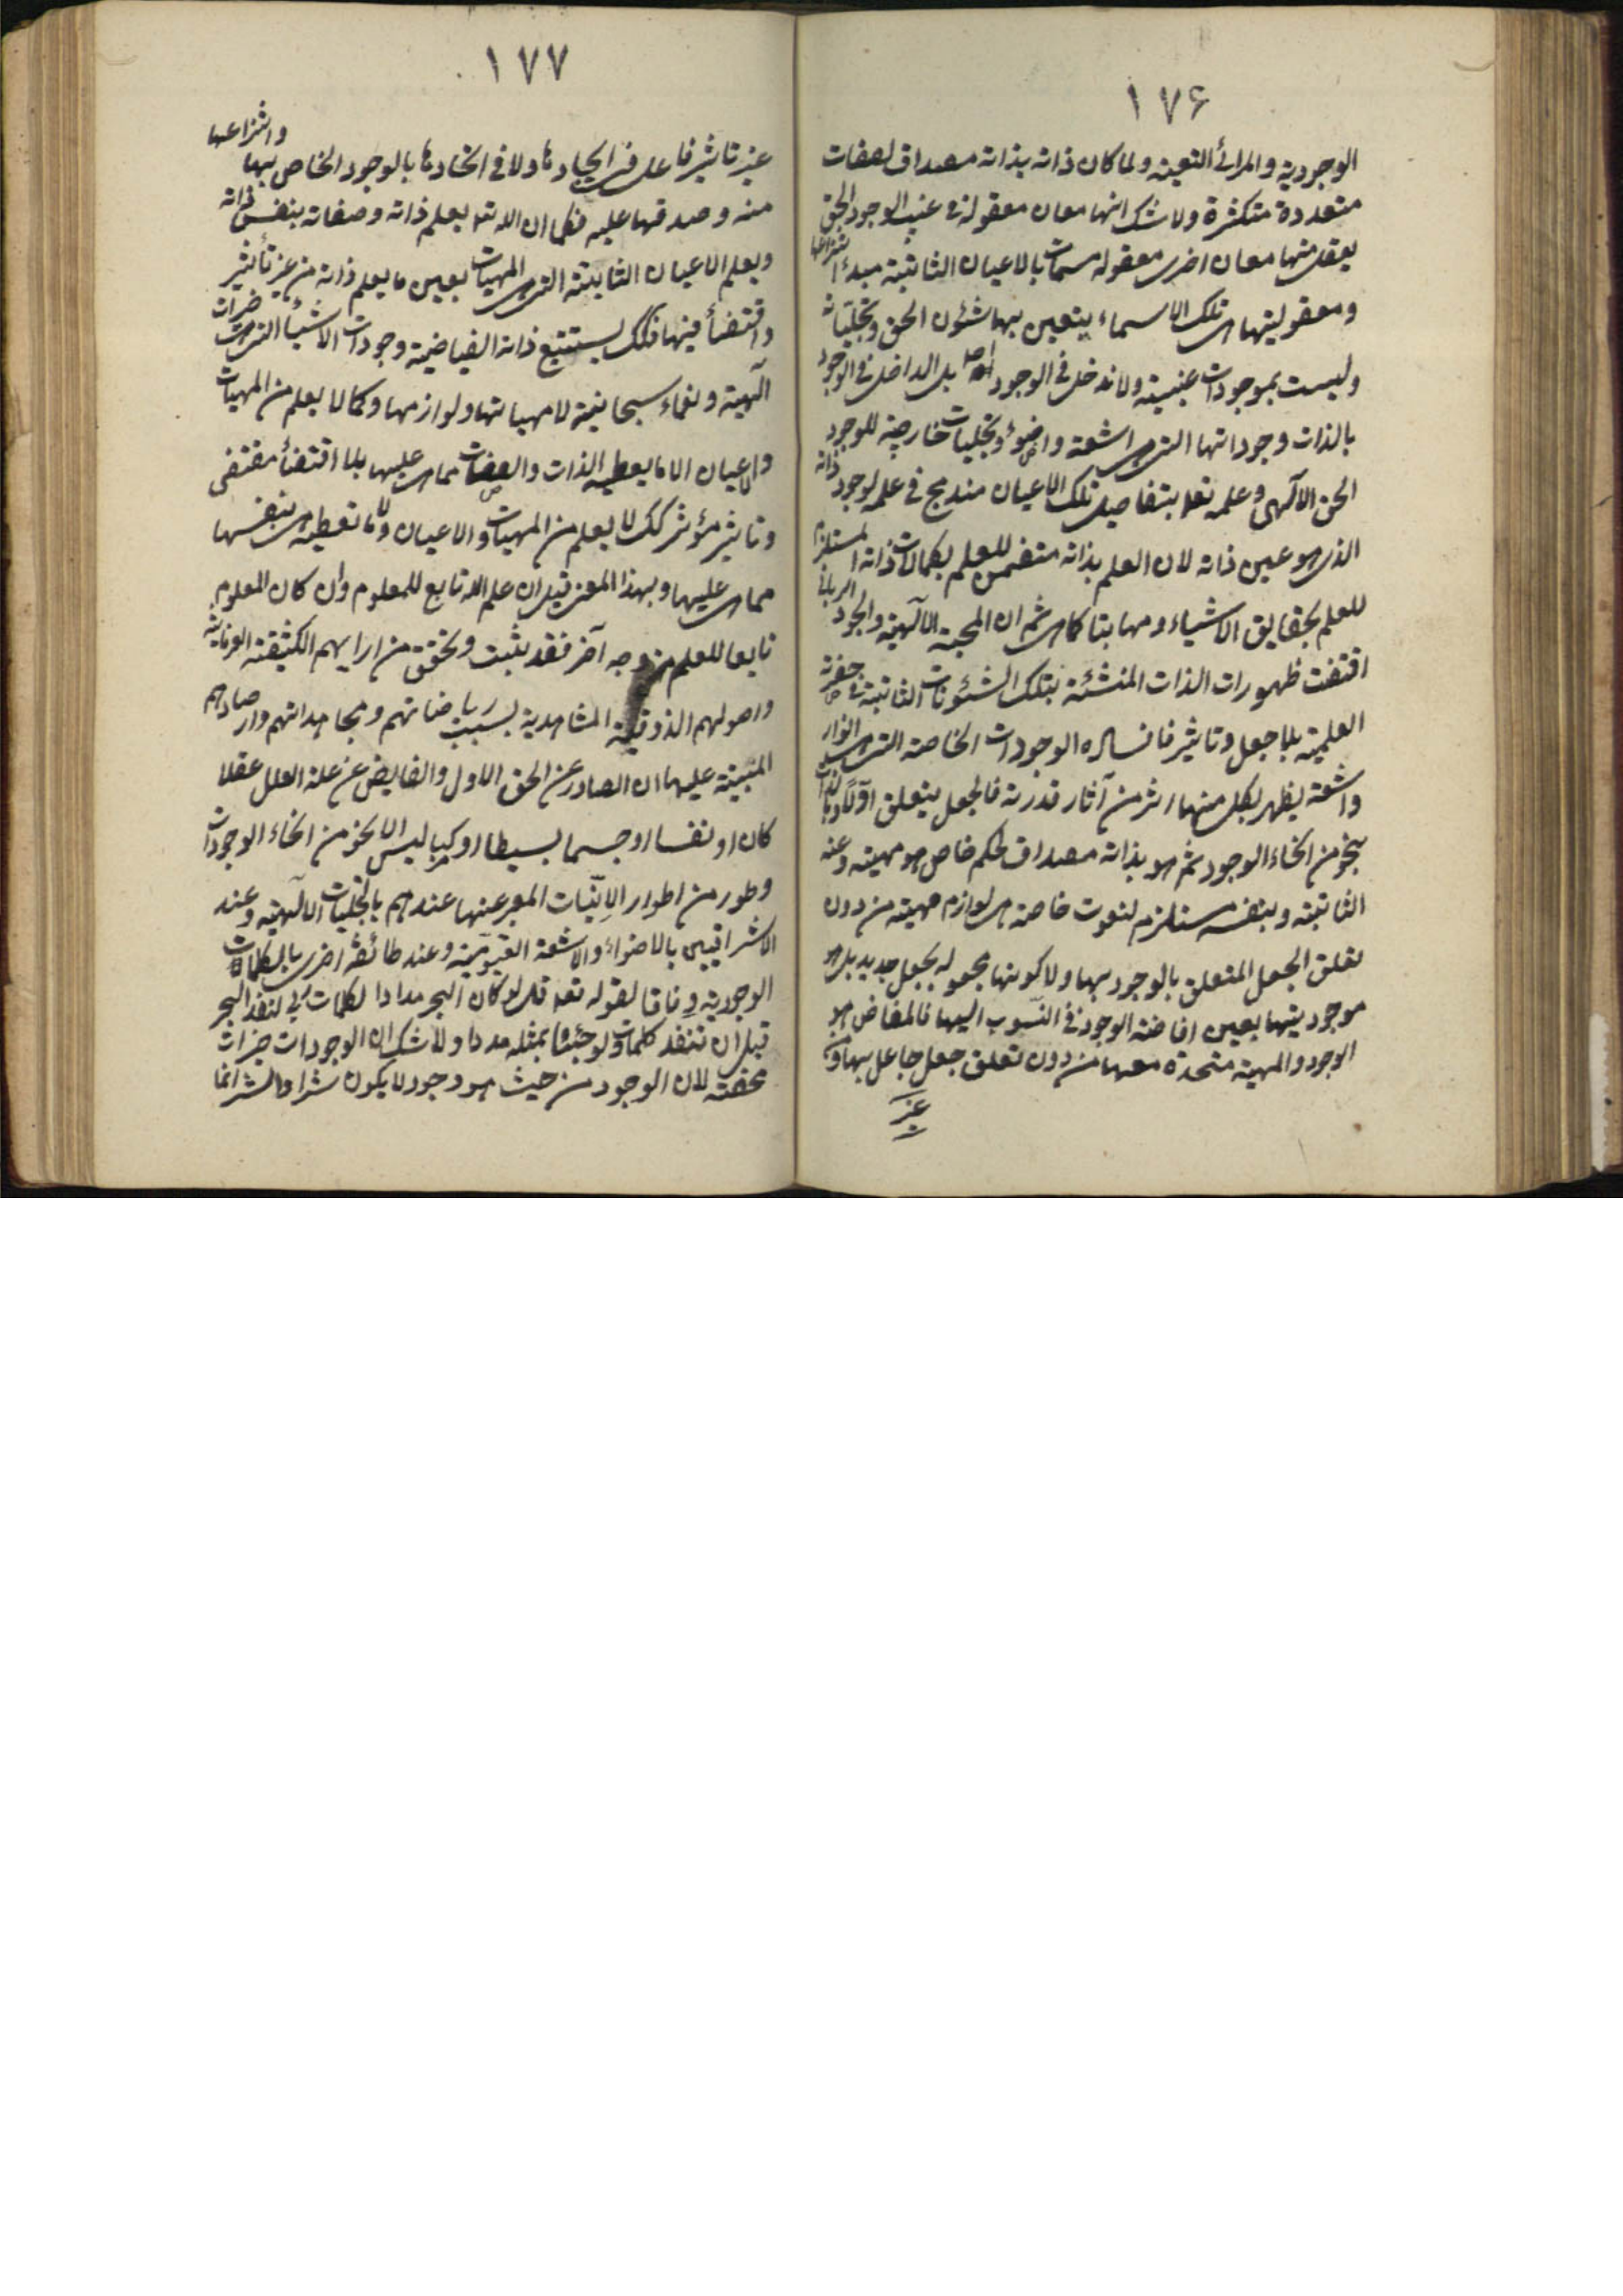 ١٧۶
الوجودية والمرائ التعينه ولما كان ذاته بذاته مصداق لصفات
متعددة متكثرة ولا شك انها معان معقولة فى غيب الوجود الحق
يعقل منها معان اخرى معقوله مسمات بالاعيان الثابتة مبدء انتزاعها
ومعقوليتها هى تلك الاسماء يتعين بها شئون الحق وتجلياته
وليست بموجودات عينية ولا تدخل فى الوجود اصلا بل الداخل فى الوجود
بالذات وجوداتها التى هى اشعة واضواء وتجليات خارجية للوجود
الحق الآلهى وعلمه تعا بتفاصيل تلك الاعيان مندمج فى علمه لوجود ذاته
الذى هو عين ذاته لان العلم بذاته متضمن للعلم بكمالات ذاته المستلزم
للعلم بحقايق الاشياء ومهياتها كماهى ثم ان المحبة الآلهية والجود الربانى
اقتضت ظهورات الذات المنشئة بتلك الشئونات الثابتة فى حضرته
العلمية بلا جعل وتاثير فانساله الوجودات الخاصة التى هى انوار
واشعة ليظهر بكل منها اثر من آثار قدرته فالجعل يتعلق اولا وبالذات
بنحو من انحاء الوجود ثم هو بذاته مصداق لحكم خاص هو مهيته وعينه
الثابتة وبنفسه مستلزم لنعوت خاصة هى لوازم مهيته من دون
تعلق الجعل المتعلق بالوجود بها ولا كونها مجعوله بجعل جديد بل هو
موجوديتها بعين افاضة الوجود فى النسوب اليها فالمفاض هو
الوجود والمهية متحدة معها من دون تعلق جعل جاعل بها ومن
غير
١٧٧
غير تاثير فاعل فى ايجادها ولا فى اتحادها بالوجود الخاص بها وانتزاعها
منه وصدقها عليه فكما ان الله تعا يعلم ذاته وصفاته بنفس ذاته
ويعلم الاعيان الثابتة التى هى المهيات بعين ما يعلم ذاته من غير تأثير
واقتضأ فيها فكك يستتبع ذاته الفياضية وجودات الاشيأ التى هى خيرات
آلهية ونعماء سبحانية لا مهياتها ولوازمها وكما لا يعلم من المهيات
والاعيان الا ما يعطيه الذات والصفات مماهى عليها بلا اقتضأ مقتضى
وتاثير مؤثر كك لا يعلم من المهيات والاعيان الا ما تعطيه هى بنفسها
مماهى عليها وبهذا المعنى قيل ان علم الله تابع للمعلوم وان كان المعلوم
تابعا للعلم من وجه آخر فقد ثبت وتحقق من ارايهم الكشفية العرفانية
واصولهم الذوقية المشاهدية بسبب رياضاتهم ومجاهداتهم وارصادهم
المبنية عليها ان الصادر عن الحق الاول والفايض عن علة العلل عقلا
كان او نفسا او جسما بسيطا او مركبا ليس الا نحو من انحاء الوجودات
وطور من اطوار الانيات المعبر عنها عندهم بالتجليات الآلهية وعند
الاشراقيين بالاضواء والاشعة القيومية وعند طائفة اخرى بالكلمات
الوجودية وفاقا لقوله تعا قل لو كان البحر مدادا لكلمات ربى لنفد البحر
قبل ان تنفد كلمات ربى ولو جئنا بمثله مددا ولا شك ان الوجودات خيرات
محضة لان الوجود من حيث هو وجود لا يكون شرا والشر انما